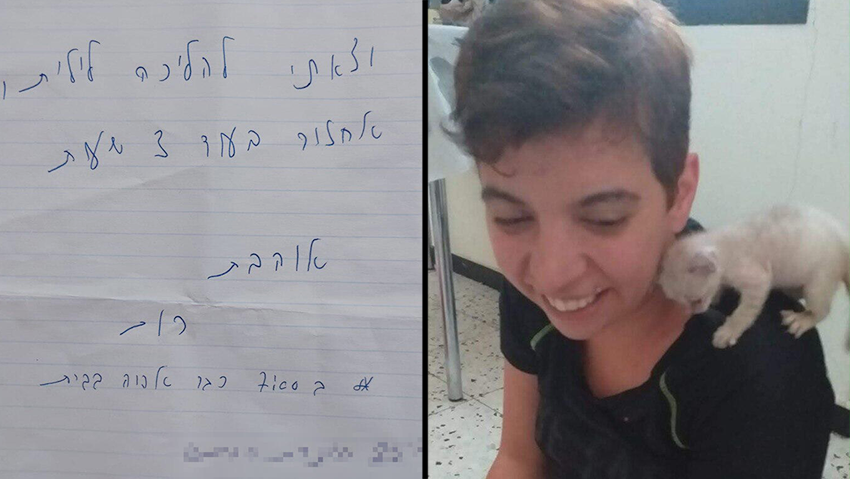 יצאתי להליכה לילית,
אחזור בעוד 3 שעות
אוהבת
רות
* ב 7:00 כבר אהיה בבית